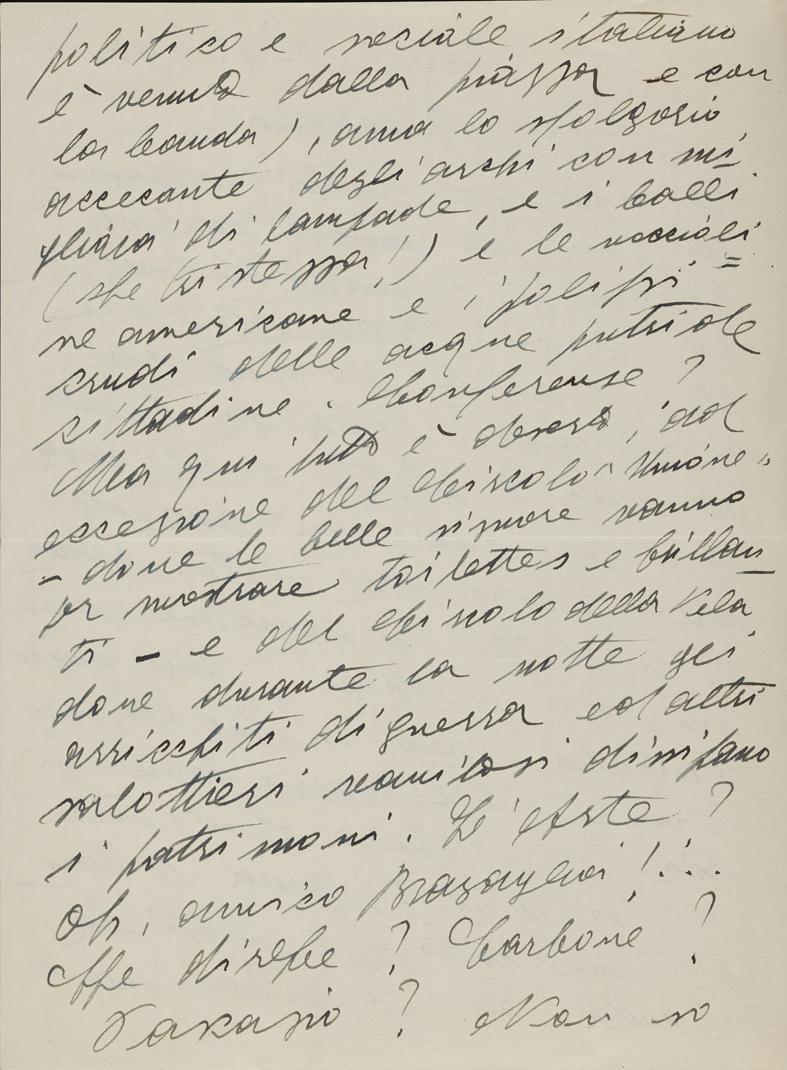 politico e sociale italiano
è venuto dalla piazza e con
la banda), ama lo sfolgorio
accecante degli archi con mi
gliaia di lampade, e i balli
(che tristezza!) e le noccioli=
ne americane e i polipi
crudi delle acque putride
cittadine. Conferenze?
Ma qui tutto è deserto, ad
eccezione del Circolo "Unione"
- dove le belle signore vanno
per mostrare toilettes e brillan-
ti - e del Circolo della Vela
dove durante la notte gli
arricchiti di guerra ed altri
salottieri vanitosi dissipano
i patrimoni. L'Arte?
Oh, amico Bragaglia!...
Che direbbe? Carbone?
Javazio? Non so